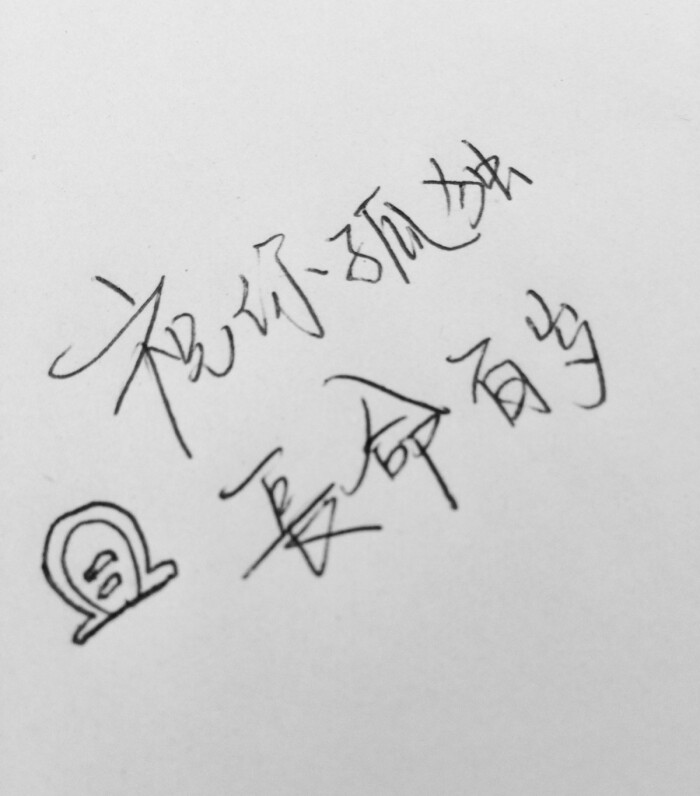 祝你孤独
長命百岁